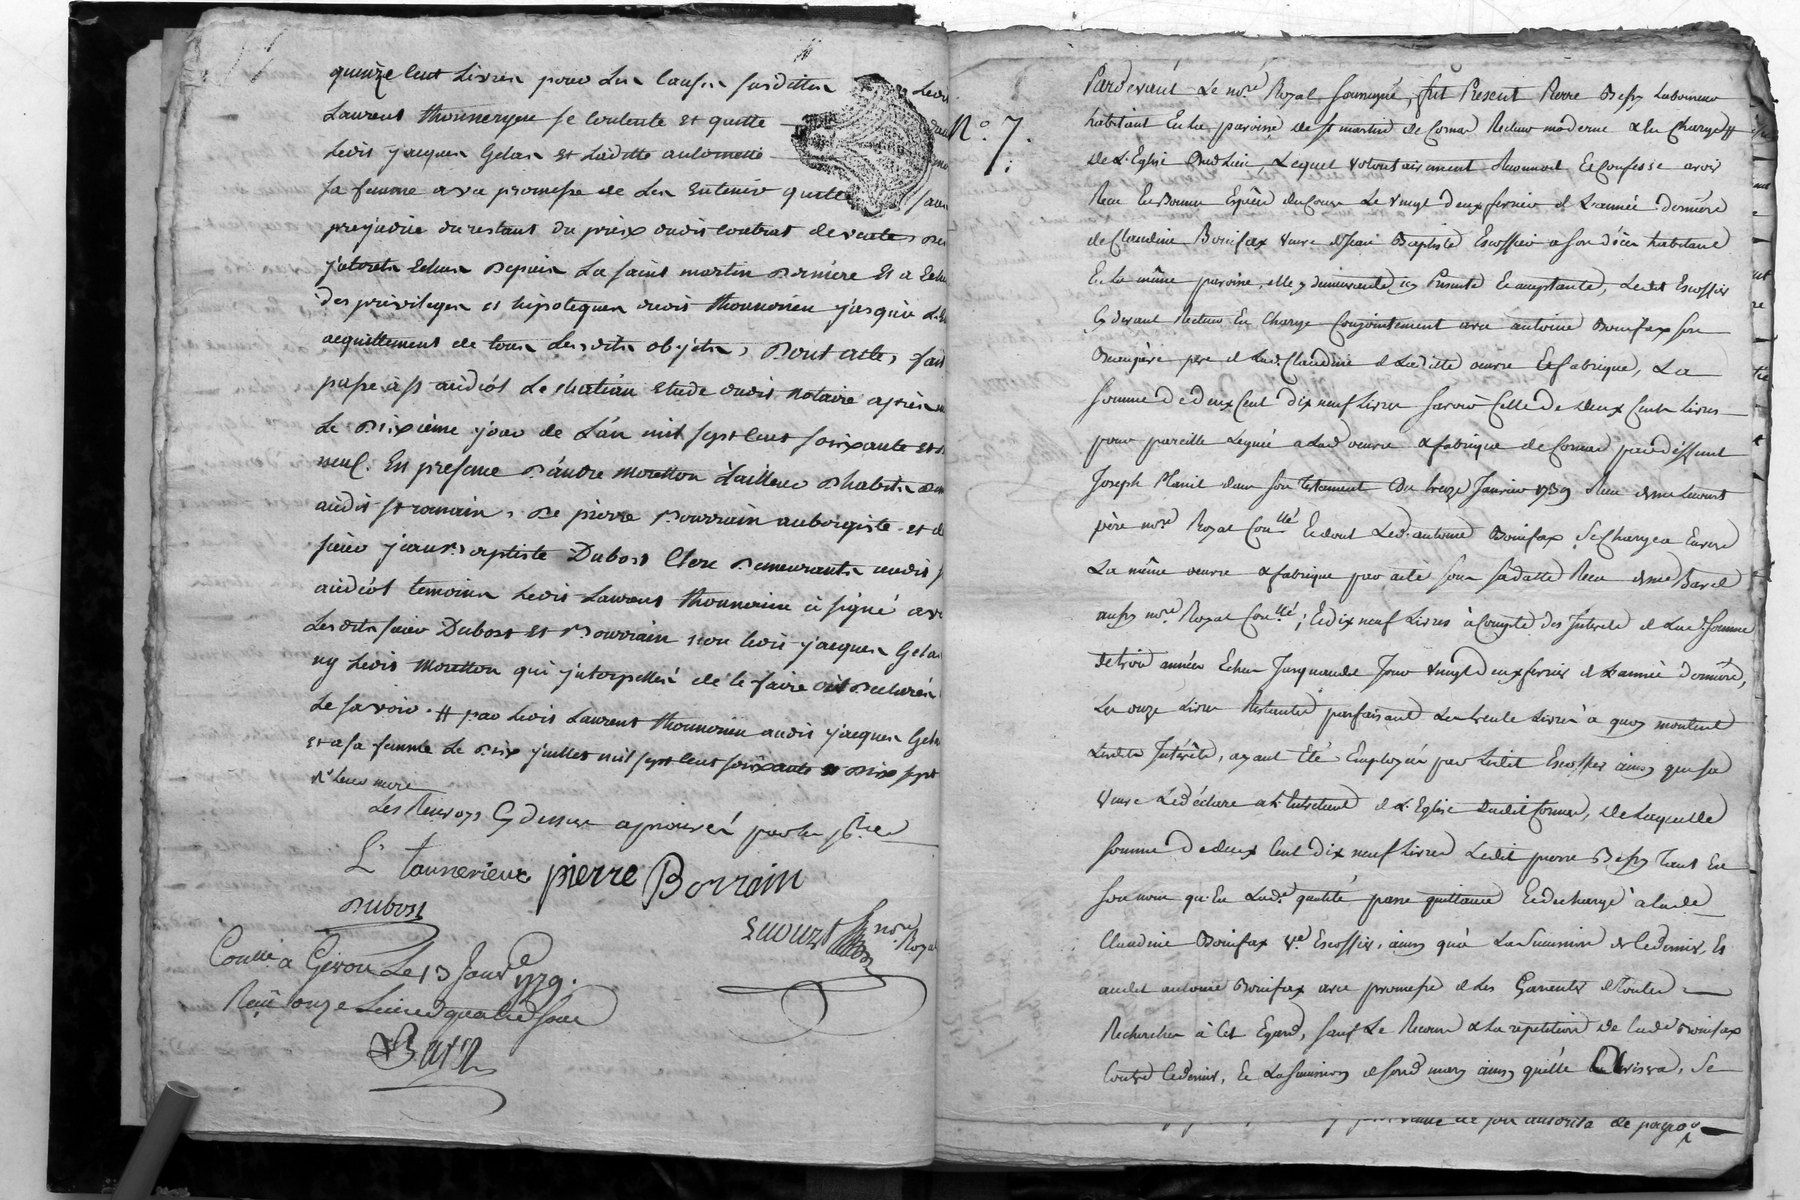 quinze cent Livres pour Les causes susdittes Ledit
Laurent thonnerieu se contente et quitte
Ledit jacques Gelas et Laditte antoinette
sa femme avec promesse de Les entenir quitte sans
prejudice du restant du prieix dudit contrat de vente, des
jnterets Echus Depuis La saint martin Derniere Et a Echoir
des privileges et hipoteques dudit thonnerieu jusqu'a L'en
acquittement de tous Lesdits objets, Dont acte, fait
passé à st andéol Le chateau Etude dudit notaire apres
Le Dixieme jour de L'an mil sept cent soixante et dix
neuf. En presence D'andré moretton tailleur D'habits
audit st romain, De pierre Bourrain aubergiste et de
sieur jean Baptiste Dubost Clerc Demeurants audit st
andéol temoins Ledit Laurent thonnerieu à signé avec
Lesdits sieur Dubost et Bourrain non Ledit jacques Gelas
ny Ledit moretton qui jnterpellés de le faire ont Declarés
Le savoir. # par Ledit Laurent thonnerieu audit jacques Gelas
et a sa femme Le dix juillet mil sept cent soixante et dix sept
Les Renvoys Cy dessus aprouvés
L. tonnerieux pierre Borrain
Dubost
not.re Royal
Con.lé a Givors Le 13 Janv.r 1779.
Reçu onze Livres quatre sous
Bard
N.o 7.
Pardevant Le not.re Royal soussigné, fut Present Pierre Bessy Laboureur
habitant En La paroisse de st martin de Cornas Recteur moderne & en Charge
de L'Eglise dud Lieu Lequel volontairement Reconnoit & Confesse avoir
Reçu En Bonnes Especes du Cours Le vingt deux fevrier de L'année derniere
de Claudine Bonifax veuve de Jean Baptiste Escoffier a son decès habitant
En La même paroisse, elle y demeurante icy Presente & acceptante, Ledit Escoffier
Cy devant Recteur En Charge Conjointement avec antoine Bonifax son
Beaupère pere de Lad. Claudine de Laditte œuvre & fabrique, La
somme de deux Cent dix neuf Livres savoir Celle de deux Cents Livres
pour pareille Leguée a Lad. œuvre & fabrique de Cornas par deffunt
Joseph Planil dans son testament du treize Janvier 1759 Reçu
père not.re Royal Con.llé & dont Led. antoine Bonifax se Chargea Envers
La même œuvre & fabrique par acte sous sa datte Reçu de me Bard
aussy not.re Royal Con.llé; & dix neuf Livres à Compte des Interets de Lad. somme
de trois années Echues Jusqu'audit Jour vingt deux fevrier de L'année derniere,
Les onze Livres Restantes parfaisant Les trente Livres à quoy montent
Lesdits Interêts, ayant Eté Employées par Ledit Escoffier ainsy que sa
veuve Le déclare à L'entretient de L'Eglise dudit Cornas, de Laquelle
somme de deux Cent dix neuf Livres Ledit pierre Bessy tant En
son nom qu'En Lad. qualité passe quittance & decharge à Lade
Claudine Bonifax v.e Escoffier, ainsy qu'à La succession de Ce dernier, Et
audit antoine Bonifax avec promesse de Les Garentir de toutes
Recherches à Cet Egard, sauf Le Recours & La repetition de Lade Bonifax
Contre Ce dernier, & La succession de son d. mary ainsy qu'elle avisera, Se
de son autorité de payer